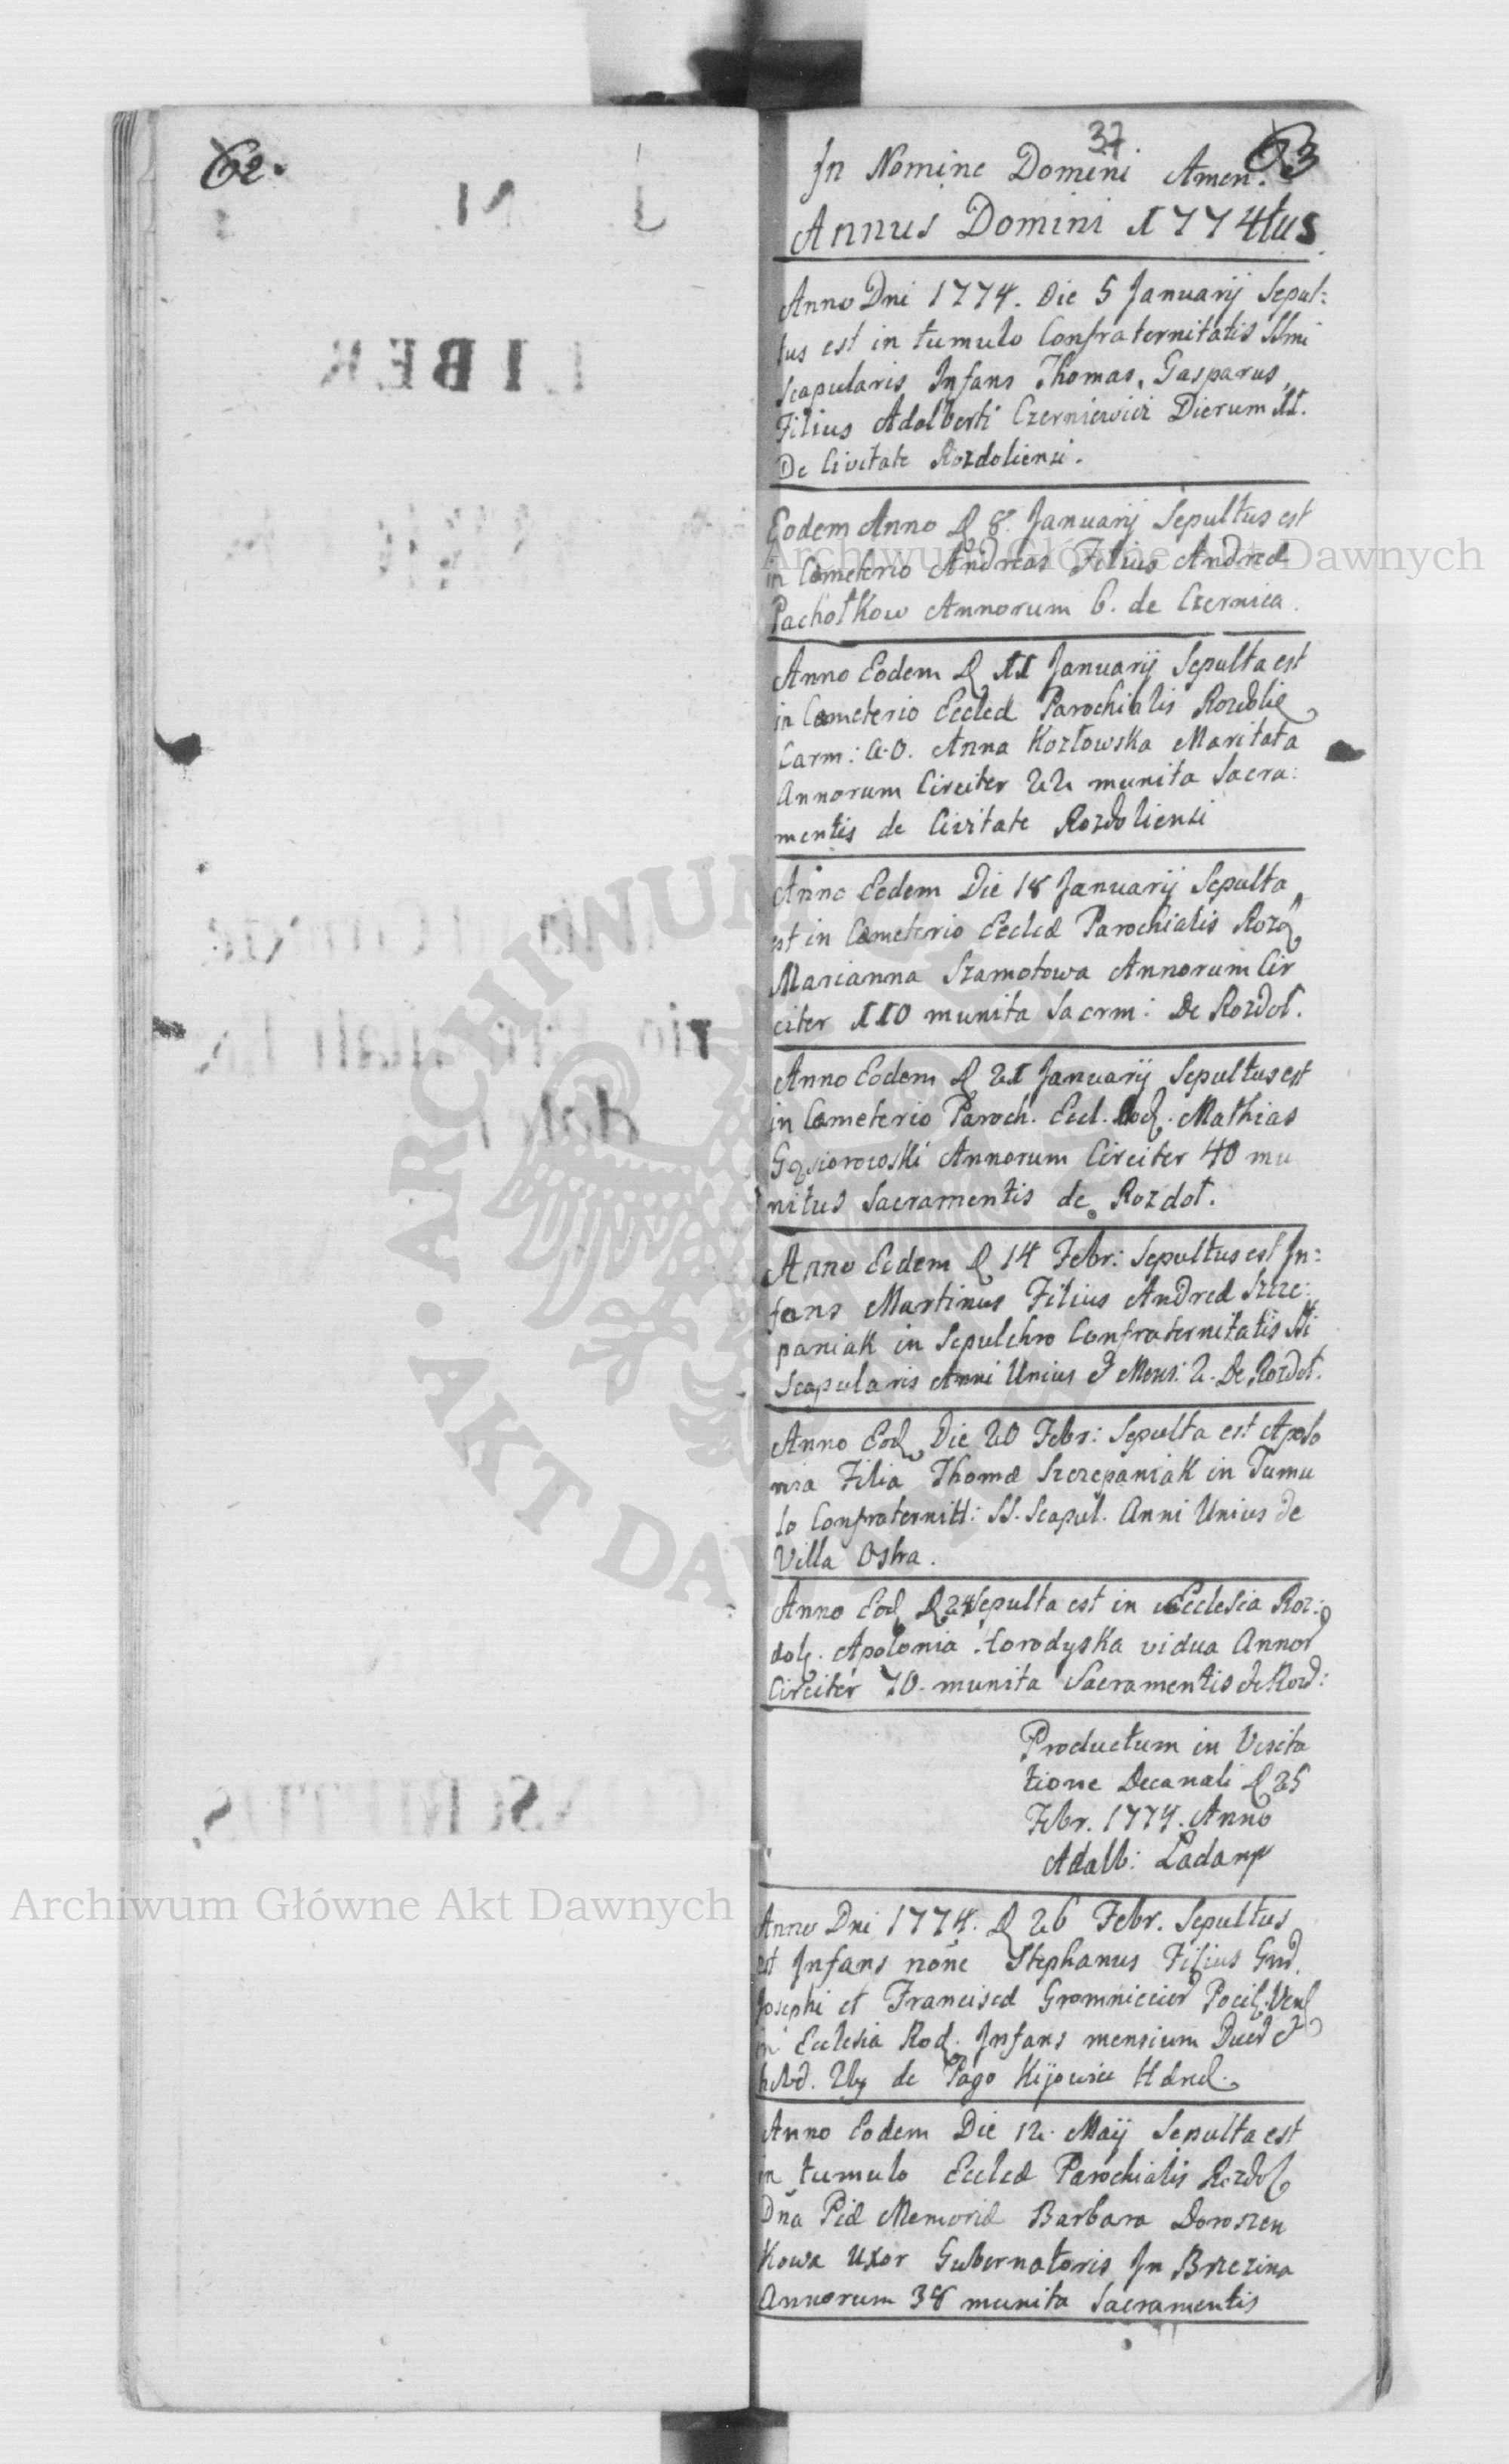 62.
37
63
In Nomine Domini Amen.
Annus Domini 1774tus
Anno Dni 1774. Die 5 Januarij Sepul:
tus est in tumulo Confraternitatis SSmi
Scapularis Infans Thomas, Gasparus,
Filius Adalberti Czerniewicz Dierum 11.
De Civitate Rozdoliensi.
Eodem Anno D 8. Januarij Sepultus est
in Cœmeterio Andreas Filius Andreæ
Pachołkow Annorum 6. de Czernica.
Anno Eodem D 11 Januarij Sepulta est
in Cœmeterio Eccleæ Parochialis Rozdolie
Carm: A. O. Anna Kozłowska Maritata
Annorum Circiter 22 munita Sacra:
mentis de Civitate Rozdoliensi
Anno Eodem Die 18 Januarij Sepulta
est in Cœmeterio Eccleæ Parochialis Rozd
Marianna Szamotowa Annorum Cir
citer 110 munita Sacrm: De Rozdoł.
Anno Eodem D 21 Januarij Sepultus est
in Cœmeterio Paroch. Eccl. Mathias
Gąsiorowski Annorum Circiter 40 mu
nitus Sacramentis de Rozdoł.
Anno Eodem D 14 Febr: Sepultus est In:
fans Martinus Filius Andreæ Szcze:
paniak in Sepulchro Confraternitatis SSi
Scapularis Anni Unius & Mens: 2. De Rozdoł.
Anno Eod Die 20 Febr: Sepulta est Apolo
nia Filia Thomæ Szczepaniak in Tumu
lo Confraternitt: SS. Scapul. Anni Unius de
Villa Ostra.
Anno Eod D 24 Sepulta est in Ecclesia Roz:
dol. Apolonia Horodyska vidua Annor
Circiter 70. munita Sacramentis de Rozd:
Productum in Visita
tione Decanali D 25
Febr. 1774. Anno
Adalb:
Anno Dni 1774. D 26 Febr. Sepultus
est Infans noñe Stephanus Filius Gnd.
Josephi et Franciscæ
in Ecclesia Rod. Infans mensium Duor &
de Pago Kijowic
Anno Eodem Die 12. Maij Sepulta est
in tumulo Eccleæ Parochialis Rozdol
Dña Piæ Memoriæ Barbara Doroszen
Kowa Uxor Gubernatoris In Brzezina
Annorum 38 munita Sacramentis
Archiwum Główne Akt Dawnych
Archiwum Główne Akt Dawnych